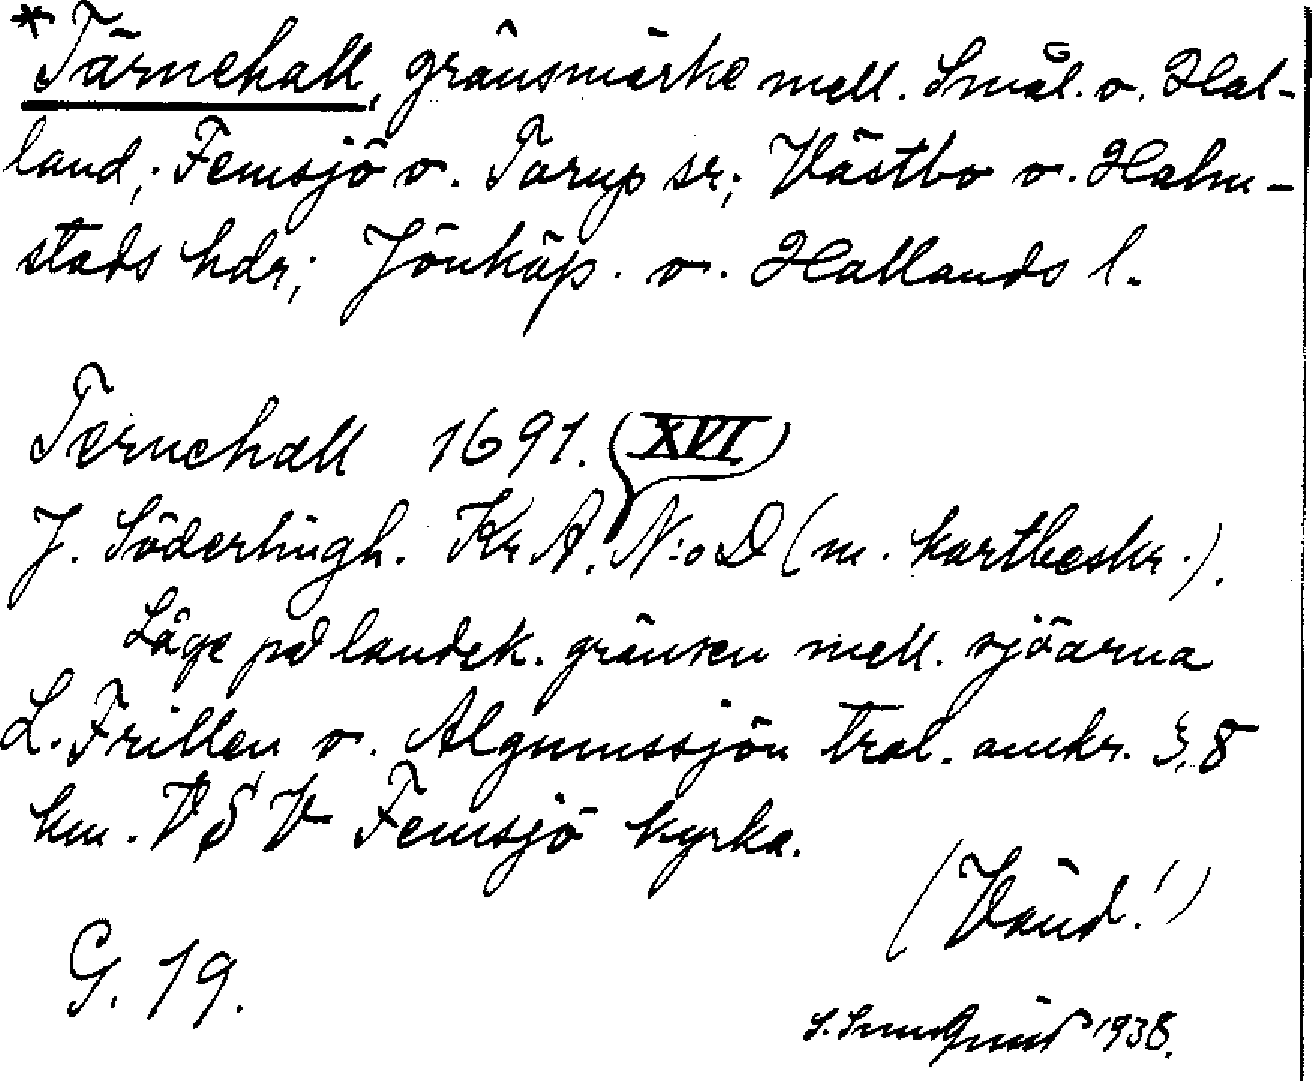 *Tärnehall, gränsmärke mell. Smål. o. Hal-
land; Femsjö o. Torup sr; Västbo o. Halm-
stads hdr; Jönköp. o. Hallands l.
Ternehall 1691. (XVI)
J. Söderlingh. KrA. N:o D (m. kartbeskr.).
Läge på landsk. gränsen mell. sjöarna
L. Frillen o. Algunnssjön trol. omkr. 3,8
km. VSV Femsjö kyrka.
(Vänd!)
G. 19.
1938.